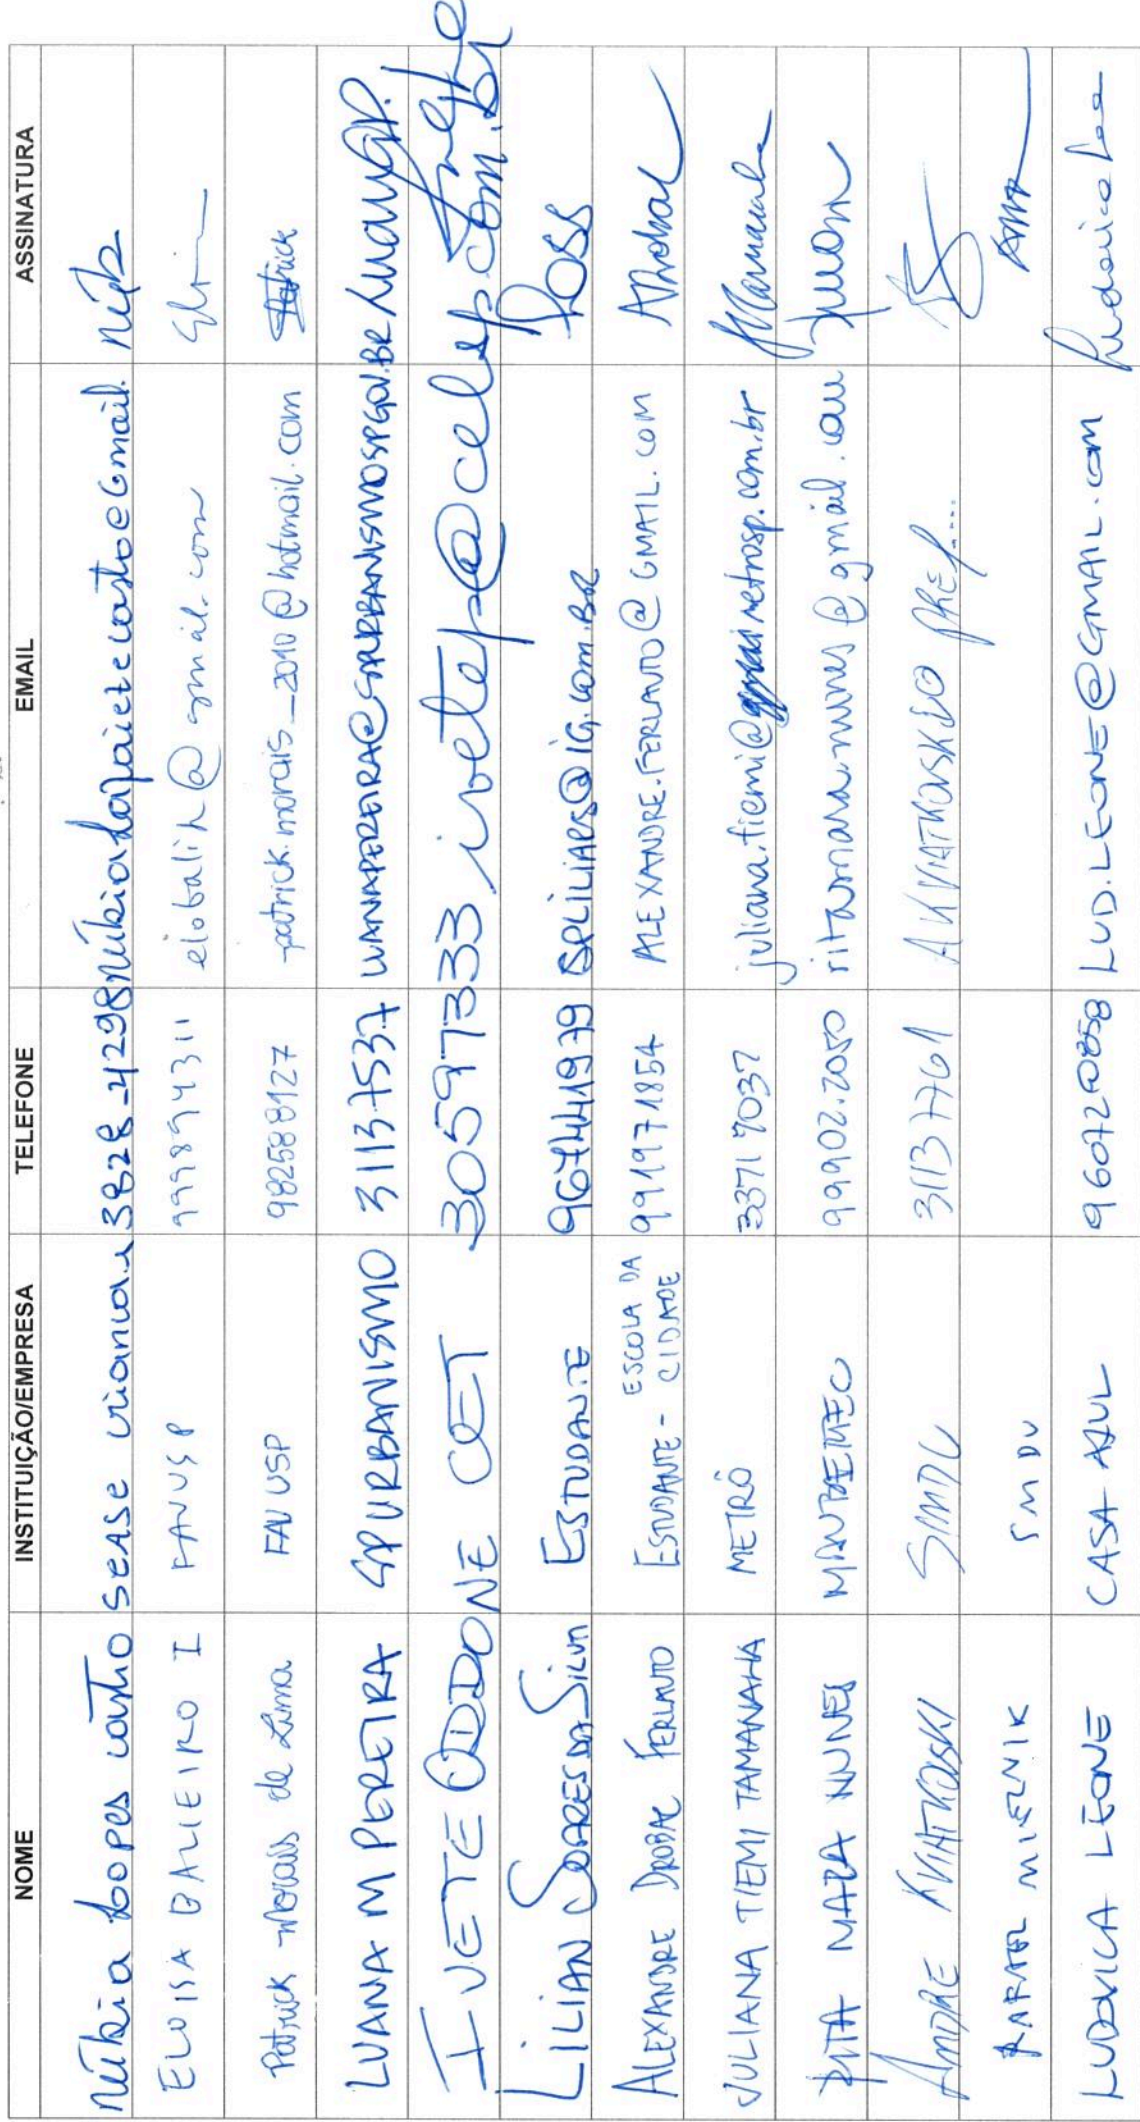 NOME INSTITUIÇÃO/EMPRESA TELEFONE EMAIL ASSINATURA
Núbia Lopes castro SEASE criança 3828-4298
ELOISA BALIEIRO I FAUUSP 999894311 elobalih@gmail.com
Patrick Morais de Lima FAUUSP 982588127 patrick.morais_2010@hotmail.com Patrick
LUANA M PEREIRA SPURBANISMO 31137537 LUANAPEREIRA@SPURBANISMO.SP.GOV.BR
IVETE ODDONE CET 30597333 ivetep@cetsp.com.br Ivete
LILIAN SOARES DA SILVA ESTUDANTE 967441979 SPLILIARS@IG.COM.BR
ALEXANDRE DROBAC FERLAUTO ESTUDANTE - ESCOLA DA CIDADE 991971854 ALEXANDRE.FERLAUTO@GMAIL.COM
JULIANA TIEMI TAMANAHA METRÔ 33717037 juliana.tiemi@metrosp.com.br
RITA MARA NUNES 99902.2050 ritamara.nunes@gmail.com
ANDRE KVIATKOVSKI SMDU 31137761 AKVIATKOVSKI@PREF....
RAFAEL MIELNIK SMDU
LUDOVICA LEONE CASA AZUL LUD.LEONE@GMAIL.COM Ludovica Leone